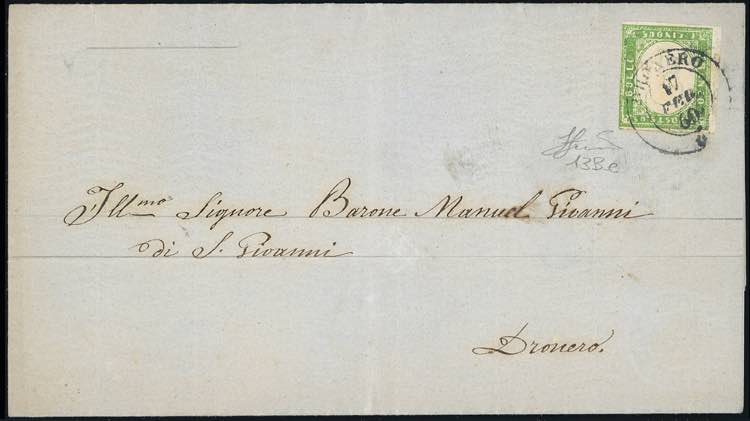 C. CINQUE
BOLLI
POST
DRONERO
17
FEB
60
13Be
Ill.mo Signore Barone Manuel Giovanni
di S. Giovanni
Dronero.